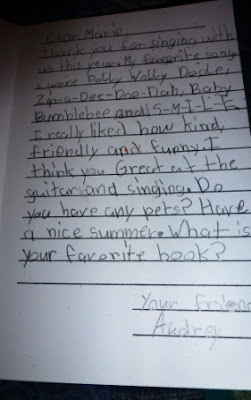 Dear Marie,
Thank you for singing with
us this year. My favorite song
s were Polly Wolly Dodle,
Zip-a-Dee-Doo-Dah, Baby
Bumblebee and S-M-I-L-E.
I really liked how kind,
friendly and funny. I
think you Great at the
guitar and singing. Do
you have any pets? Have
a nice summer. What is
your favorite book?
Your friend
Audrey